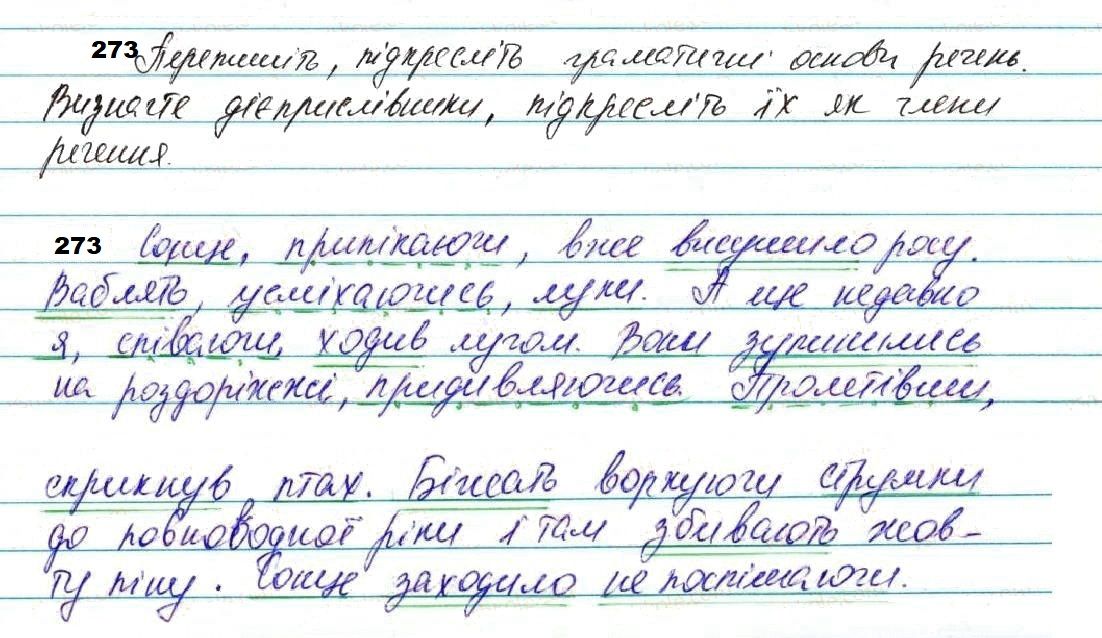 273 Перепишіть, підкресліть граматичні основи речень.
Визначте дієприслівники, підкресліть їх як члени
речення.
273 Сонце, припікаючи, вже висушило росу.
Ваблять, усміхаючись, луки. А ще недавно
я, співаючи, ходив лугом. Вони зупинились
на роздоріжжі, придивляючись. Пролетівши,
скрикнув птах. Біжать воркуючи струмки
до повноводної ріки і там збивають жов-
ту піну. Сонце заходило не поспішаючи.